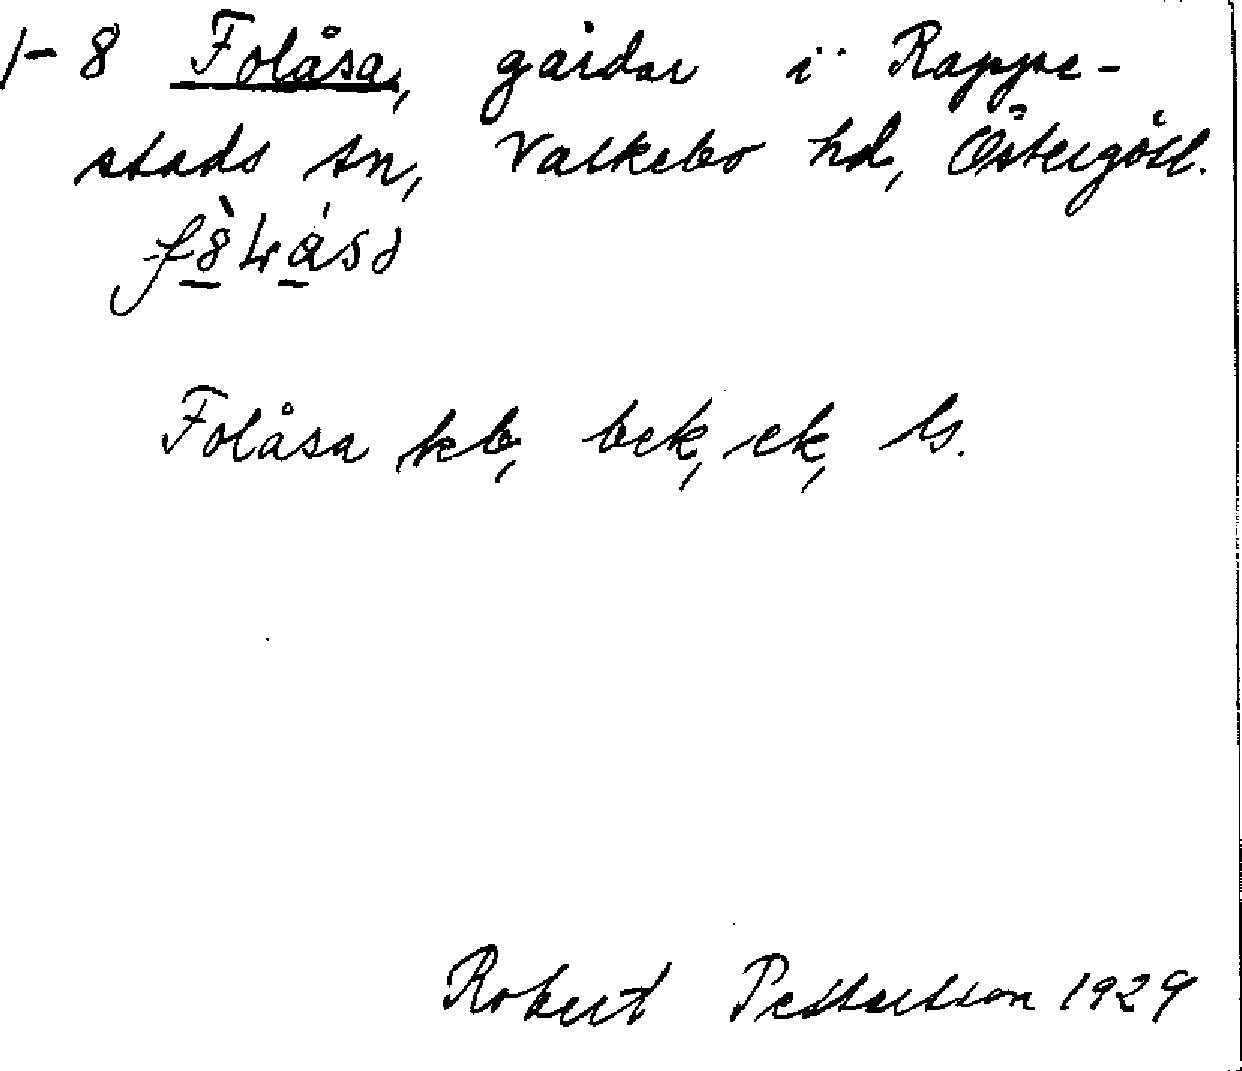 1-8 Folåsa, gårdar i Rappe-
stads sn, Valkebo hd, Östergötl.
Folåsa kb, bek, ek, ls.
Robert Pettersson 1929